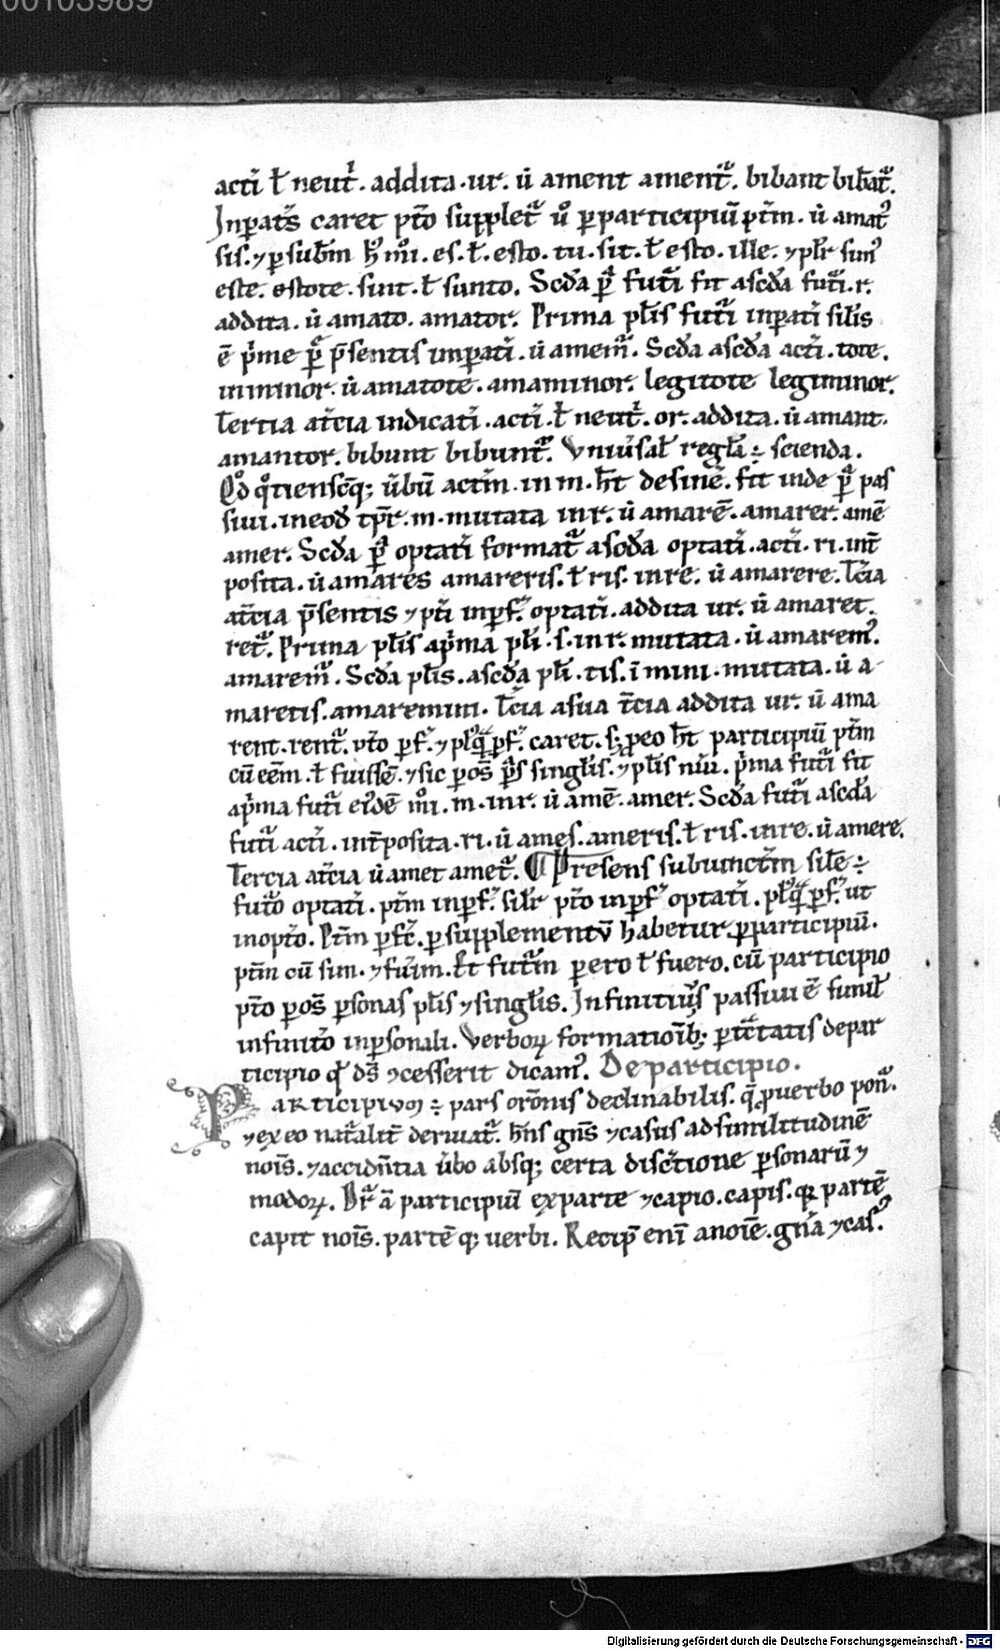 00103989
acti ł neut̄. addita .ur. ů ament ament᷑. bibant bibat᷑.
Inpatꝰ caret pt̄o supplet᷑ ů ꝑ participiū pt̄m. ů amatꝰ
sis. ⁊ ꝑ subm̄ hꝰ mͦi. es. ł. esto. tu. sit. ł esto. ille. ⁊ plͬ simꝰ
este. estote. sint. ł sunto. Scda ꝑ futi fit a scda futi .r.
addita. ů amato. amator. Prima plis futi inpati silis
ē pͥme ꝑ p̄sentis impati. ů amem᷑. Scda a scda acti. tote.
in minor. ů amatote. amaminor. legitote legiminor.
Tercia a tcia indicati. acti. ł neut̄. or. addita. ů amant.
amantor. bibunt bibunt᷑. Vniůsal regła ÷ scienda.
Qd qͦtienscūq; ůbū actiū .in m. ht̄ desinē. fit inde ꝑ pas
siui. in eod tp̄r. m. mutata in r. ů amarē. amarer. amē
amer. Scda ꝑ optati format᷑ a scda optati. acti. ri. int̄
posita. ů amares amareris. ł ris. in re. ů amarere. Tcia
a tcia p̄sentis ⁊ pt̄i inꝑf. optati. addita ur. ů amaret.
ret᷑. Prima plis a pͥma pli. s. in r. mutata. ů amaremꝰ.
amarem᷑. Scda plis. a scda pli. tis. ī mini. mutata. ů a-
maretis. amaremini. Tcia a sua tcia addita ur. ů ama
rent. rent᷑. pt̄o ꝑf. ⁊ plꝰqͣꝑf. caret. s; ꝓ eo ht̄ participiū pt̄m
cū eēm. ł fuissē. ⁊ sic ꝑ os̄ ꝑs singlis. ⁊ plis nūi. pͥma futi fit
a pͥma futi eiꝰdē mͦi. m. in r. ů amē. amer. Scda futi a scda
futi acti. int̄posita. ri. ů ames. ameris. ł ris. in re. ů amere.
Tercia a tcia ů amet amet᷑. ¶ Presens subiunctm silē ÷
futo optati. pt̄m inꝑf. silr pt̄o inꝑf optati. plꝰqͣꝑf. ut
in opt̄o. Pt̄m ꝑfc̄. ꝑ supplementū habetur ꝑ participiū.
pt̄m cū sim. ⁊ fůim. Et futm̄ ꝑ ero ł fuero. cū participio
pt̄o ꝑ os̄ ꝑsonas plis ⁊ singlis. Infinitiuꝰ passiui ē similˢ
infinito inꝑsonali. Verboꝝ formatioib; ꝑt̄ctatis de par
ticipio qͥ ds̄ ⁊cesserit dicamꝰ. De participio.
PARTICIPIVM ÷ pars oronis declinabilis. q̄ ꝓ uerbo pon᷑.
⁊ ex eo natalit̄ deriuat᷑. hn̄s gn̄s ⁊ casus ad similitudinē
nois̄. ⁊ accidn̄tia ůbo absq; certa disc̄tione ꝑsonarū ⁊
modoꝝ. Dr̄ a participiū ex parte ⁊ capio. capis. q̇ partē
capit nois̄. partē q; uerbi. Recip̄ eni a noīe. gn̄a ⁊ casꝰ.
Digitalisierung gefördert durch die Deutsche Forschungsgemeinschaft - DFG